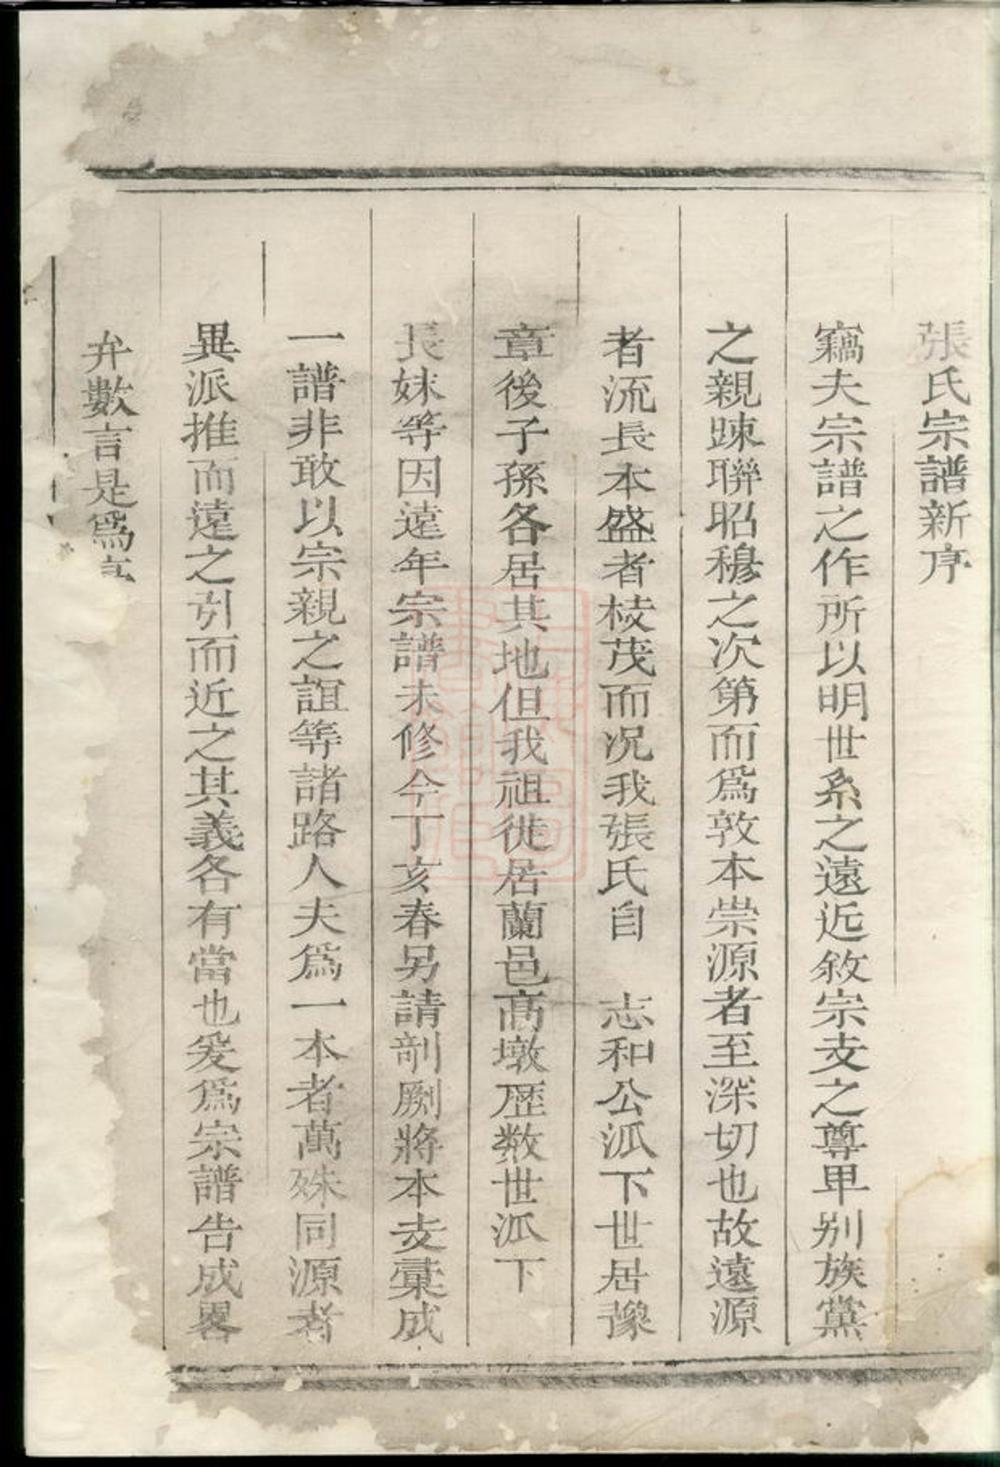 張氏宗譜新序
竊夫宗譜之作所以明世系之遠近敘宗支之尊卑别族黨
之親踈聯昭穆之次第而爲敦本崇源者至深切也故遠源
者流長本盛者枝茂而况我張氏自　志和公派下世居豫
章後子孫各居其地但我祖徙居蘭邑髙墩歷数世派下
長妹等因遠年宗譜未修今丁亥春另請剞劂將本支彙成
一譜非敢以宗親之誼等諸路人夫爲一本者萬殊同源者
異派推而遠之引而近之其義各有當也爰爲宗譜告成畧
弁數言是爲序